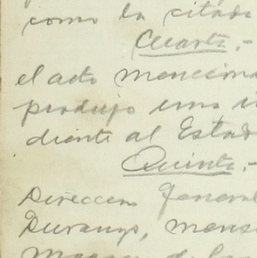 como la citada
Cuarta.-
el acto menciona
produjo una i
diente al Estad
Quinta.-
Direccion General
Durango, mens